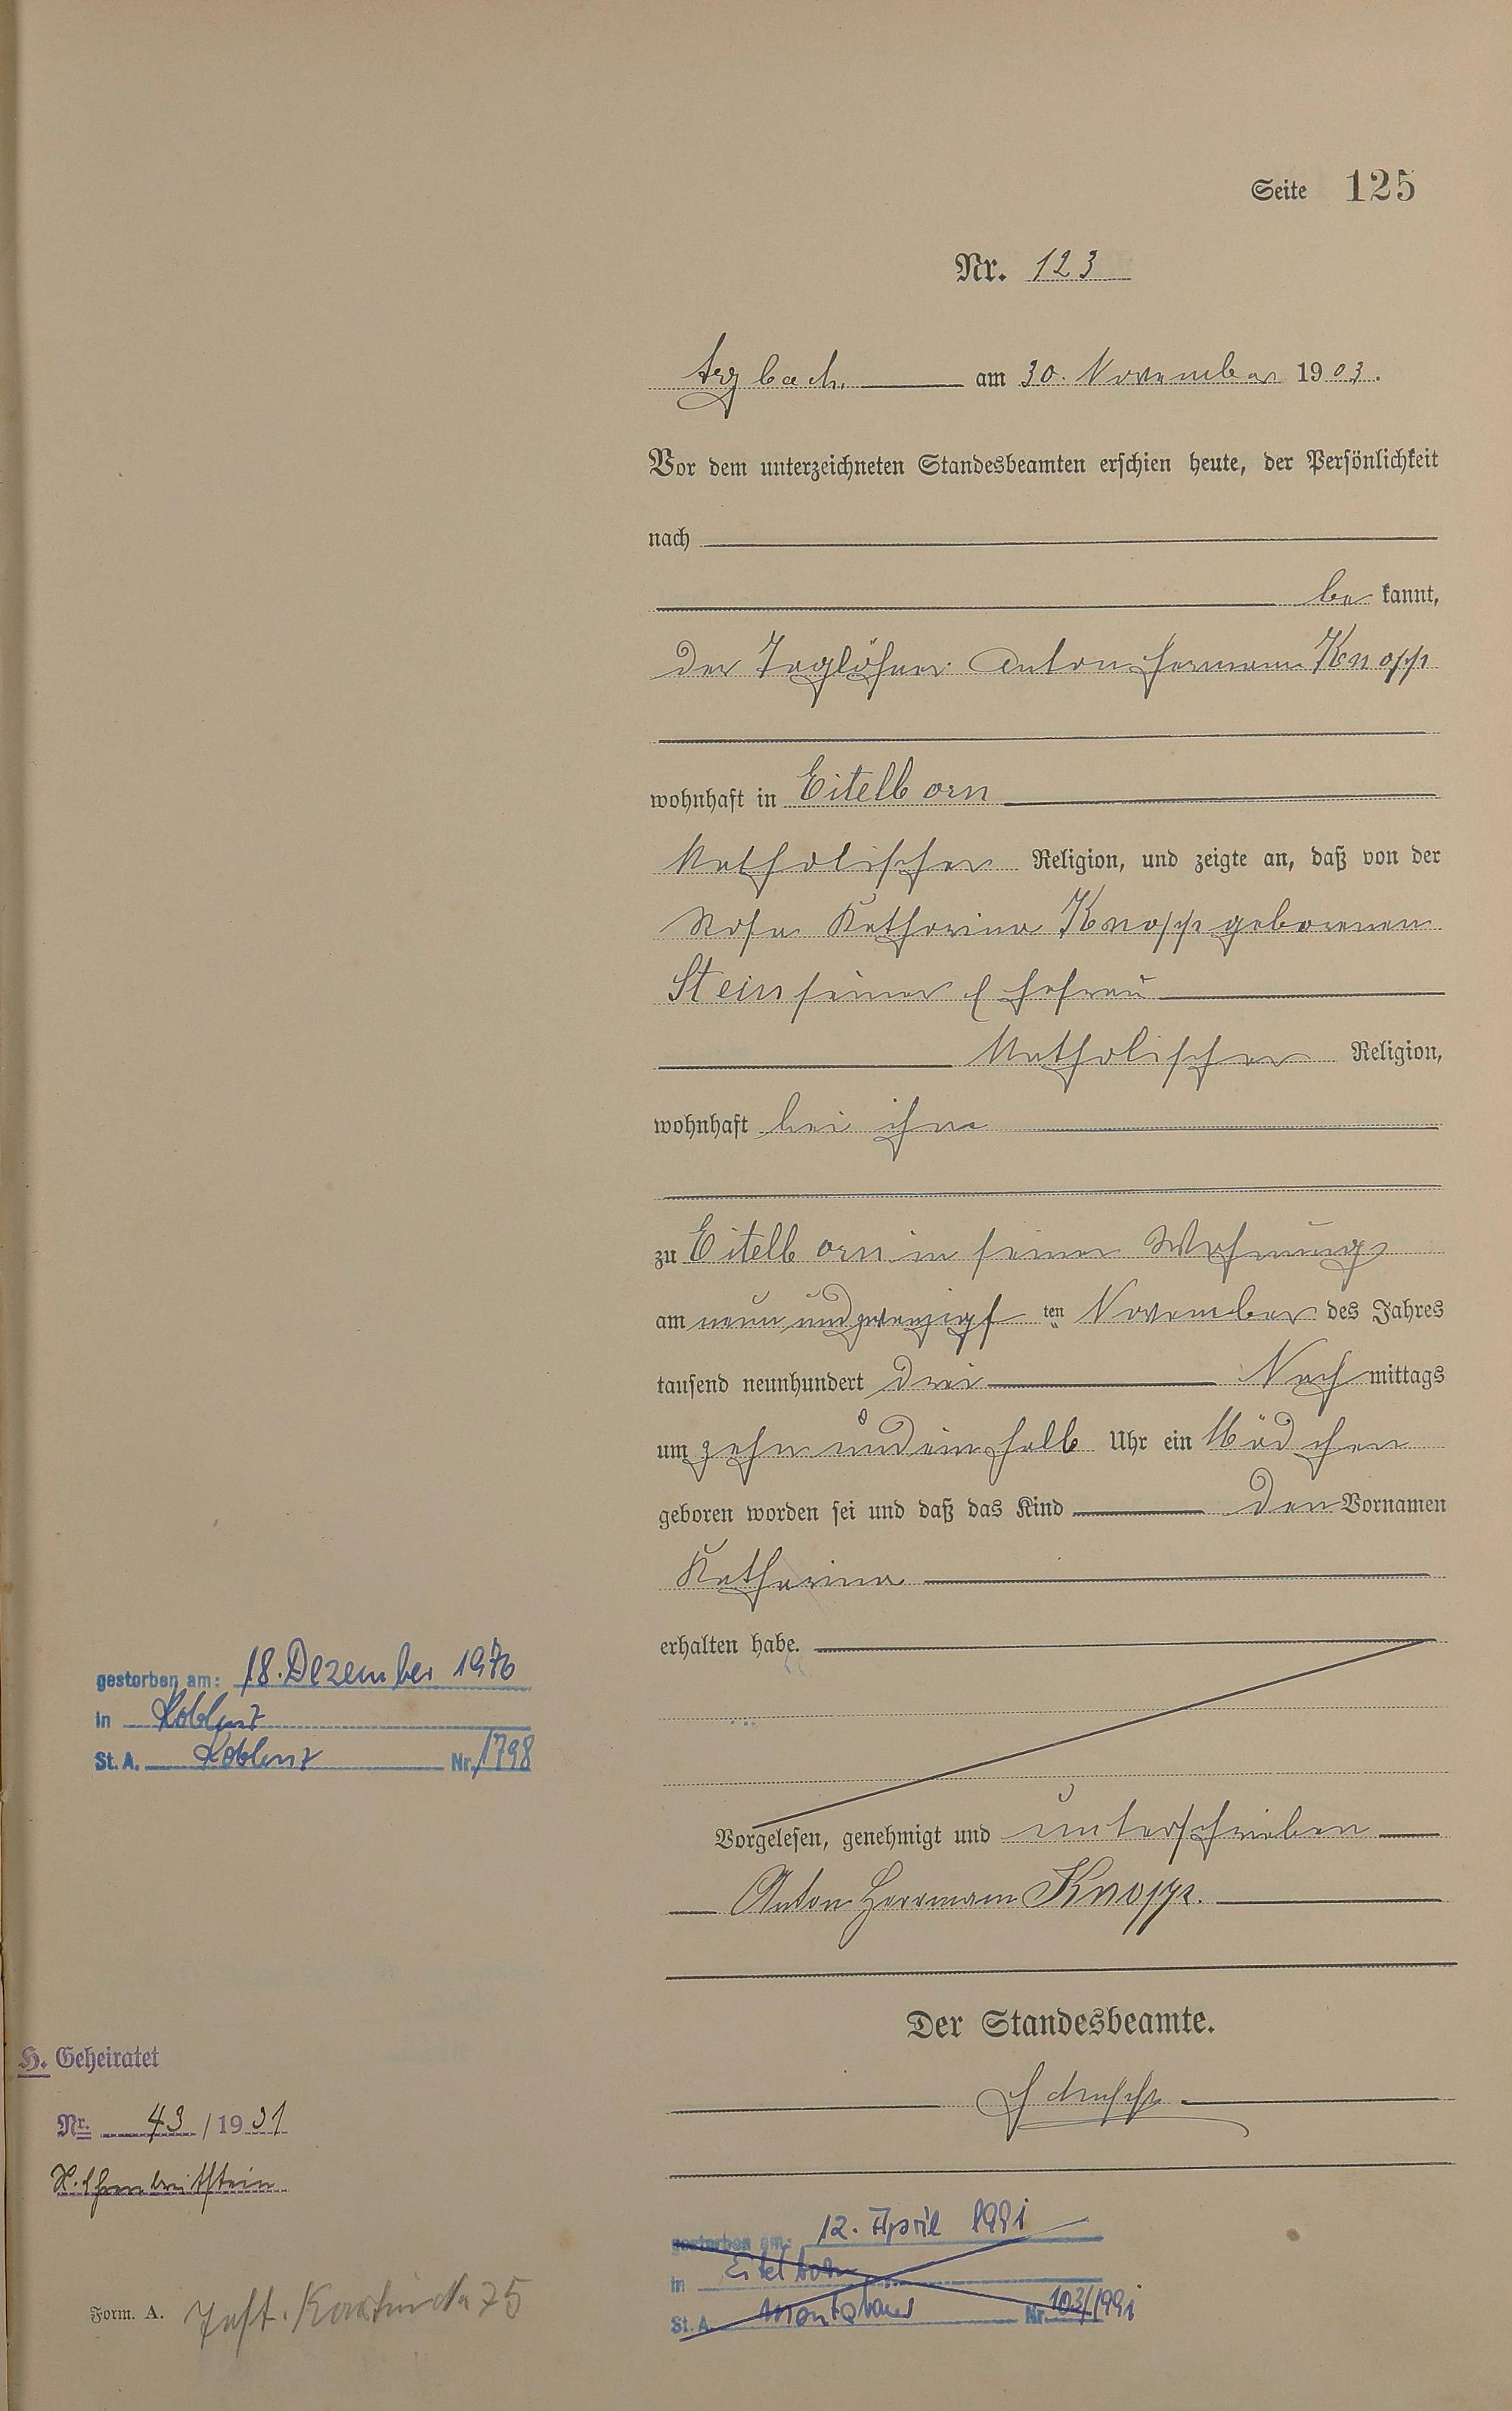 Seite 125
Nr. 123
Arzbach. am 30. November 1903.
Vor dem unterzeichneten Standesbeamten erschien heute, der Persönlichkeit
nach
be kannt,
der Taglöhner Anton Hermann Knopp
wohnhaft in Eitelborn
katholischer Religion, und zeigte an, daß von der
Rosa Katharina Knopp geborenen
Stein seiner Ehefrau
katholischer Religion,
wohnhaft bei ihm
zu Eitelborn in seiner Wohnung
am neun und zwanzigsten November des Jahres
tausend neunhundert drei Nach mittags
um zehn und ein halb Uhr ein Mädchen
geboren worden sei und daß das Kind den Vornamen
Katharina
erhalten habe.
gestorben am: 18. Dezember 1970
in Koblenz
St. A. Koblenz Nr. 1798
Vorgelesen, genehmigt und unterschrieben
Anton Herrmann Knopp.
Der Standesbeamte.
H. Geheiratet
Nr. 43 / 1931
gestorben am: 12. April 1991
in Eitelborn
St. A. Montabaur Nr. 103/1991
Form. A. 75